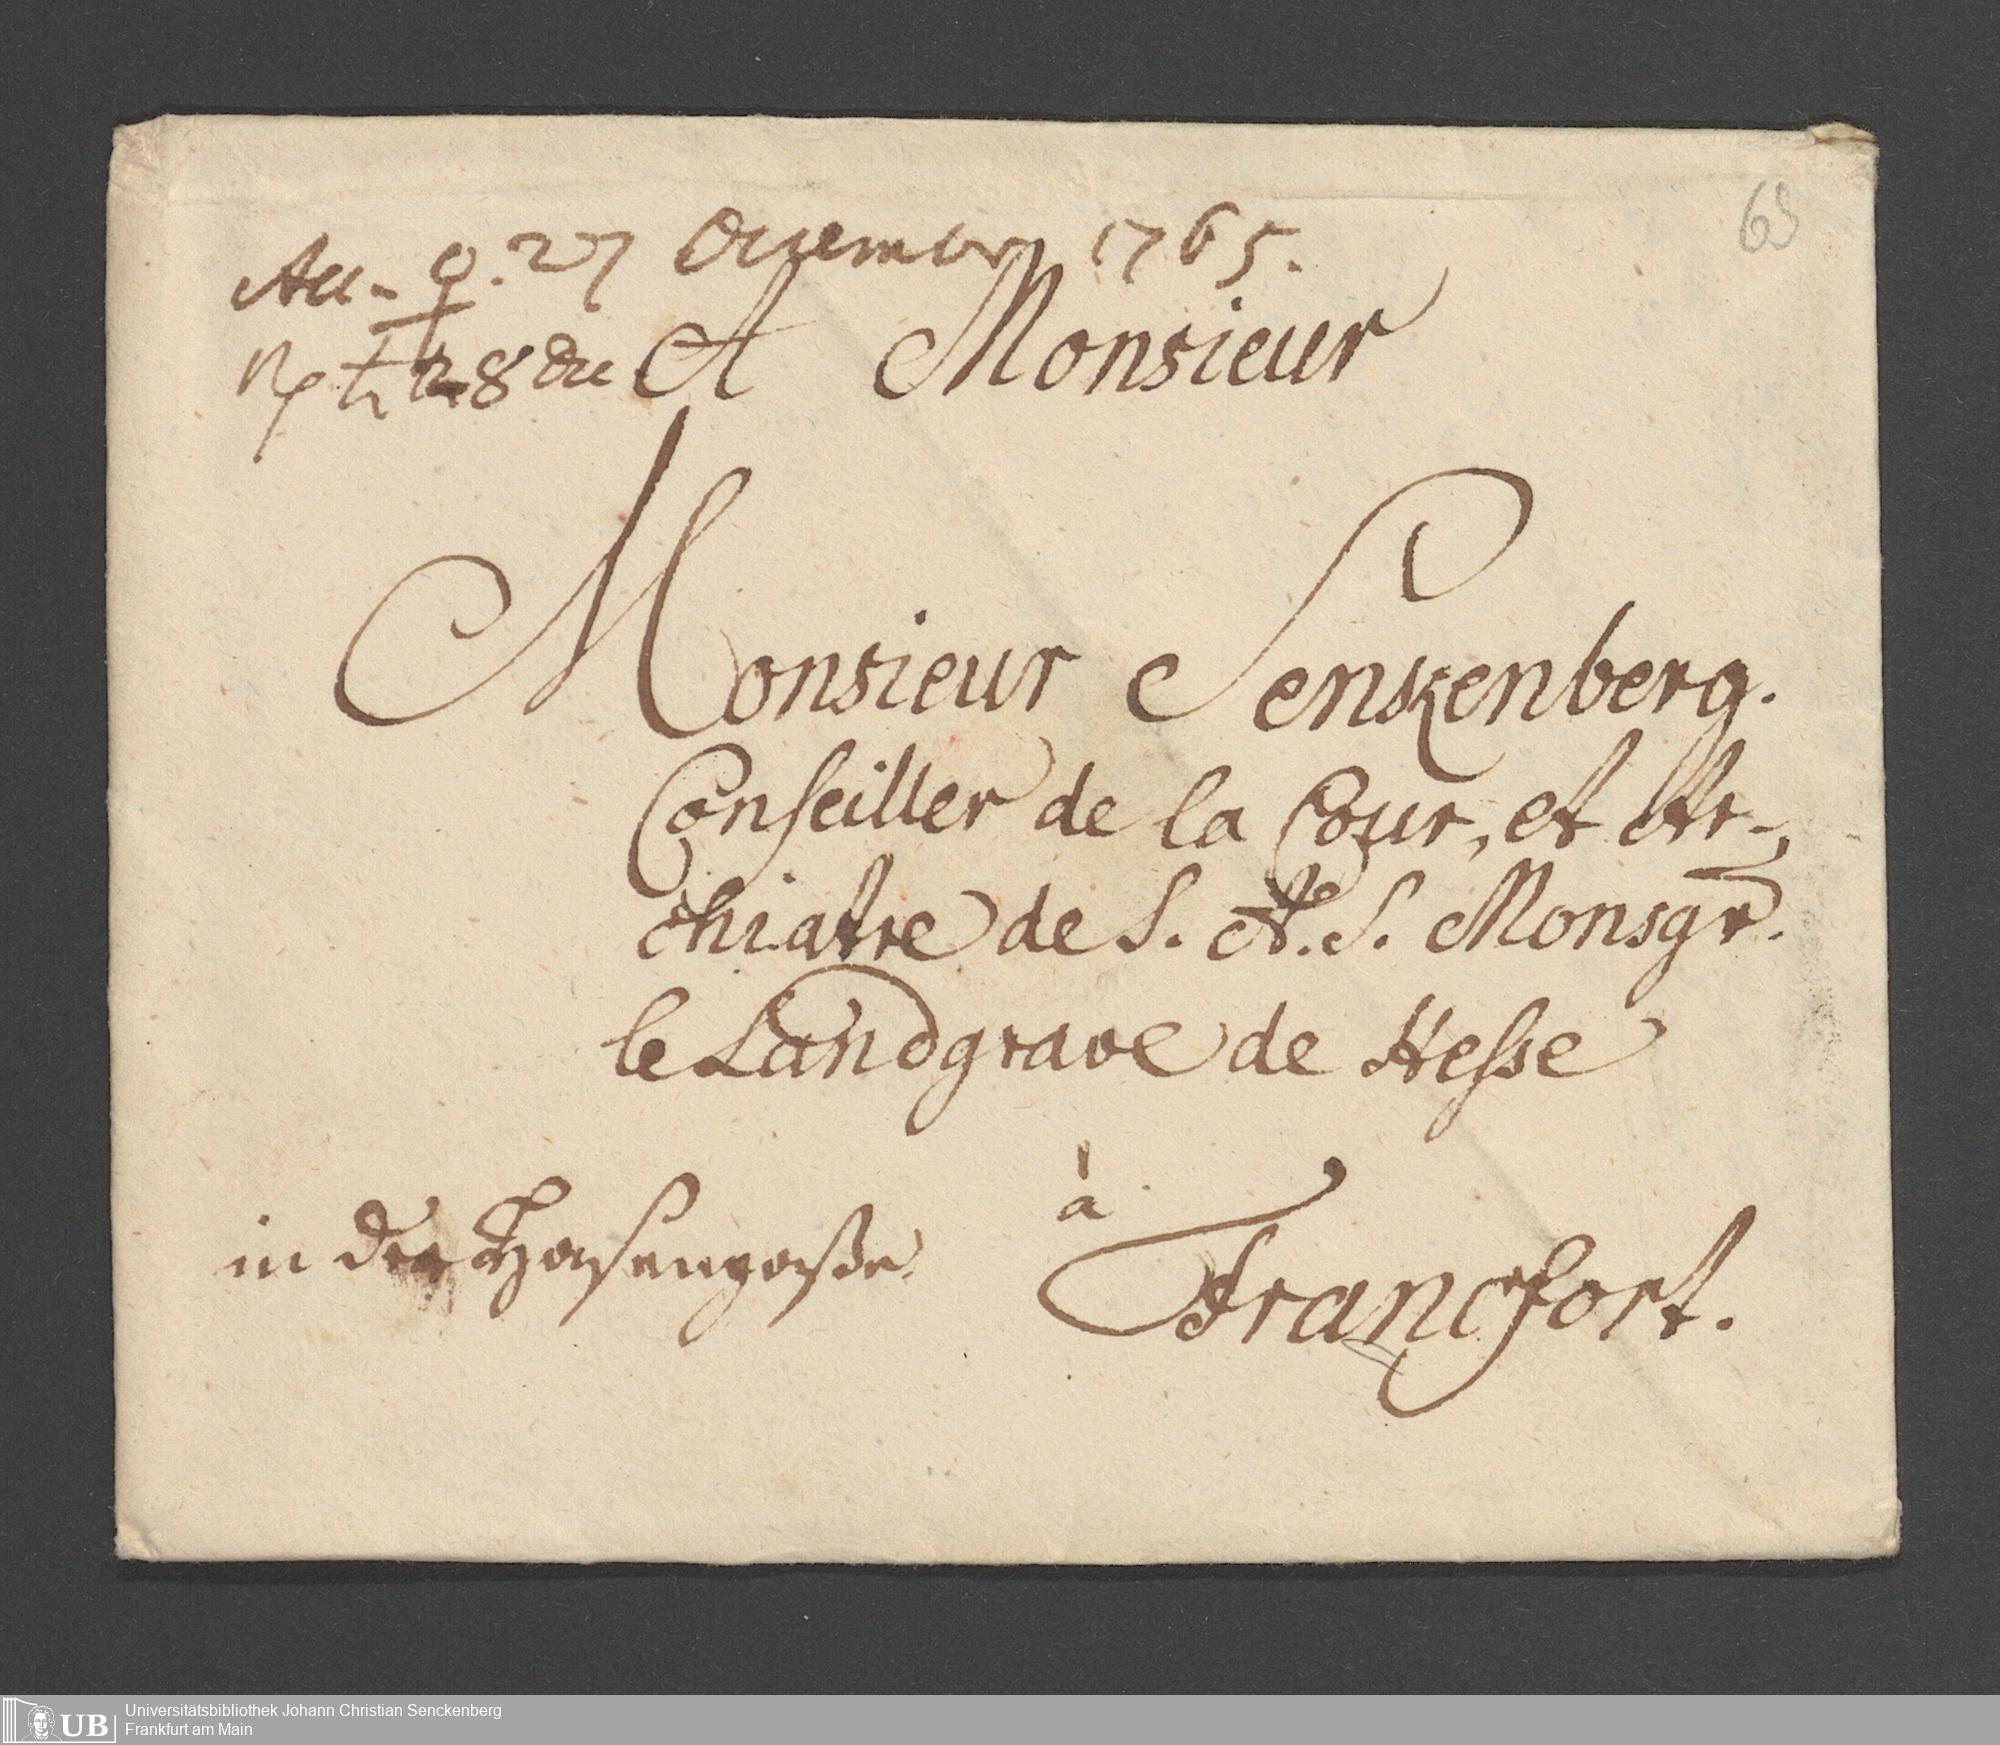 63
Acc. ♀. 27 Decembr 1765.
Rp ♄ 28 Dec
A Monsieur
Monsieur Senkenberg.
Conseiller de la Cour, et Ar-
chiatre de S. A. S. Monsgr.
le Landgrave de Hesse
à
in der Hasengaße.
Francfort.
Universitätsbibliothek Johann Christian Senckenberg
Frankfurt am Main
UB